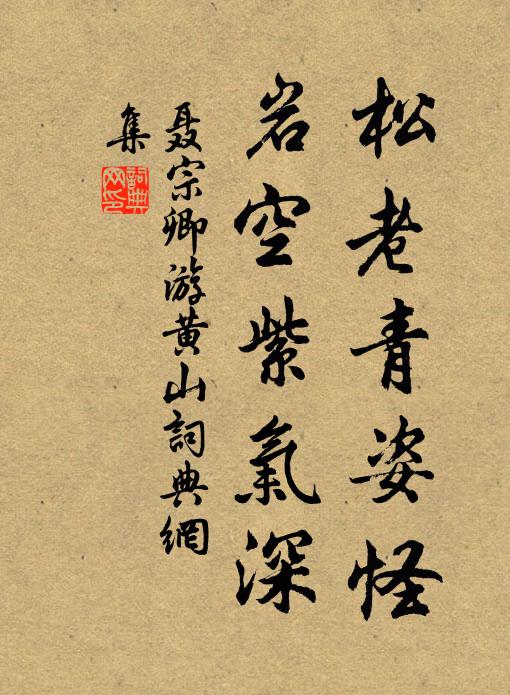 松老青姿怪
岩空紫氣深
聂宗卿游黄山詞典網
集
詞典網印